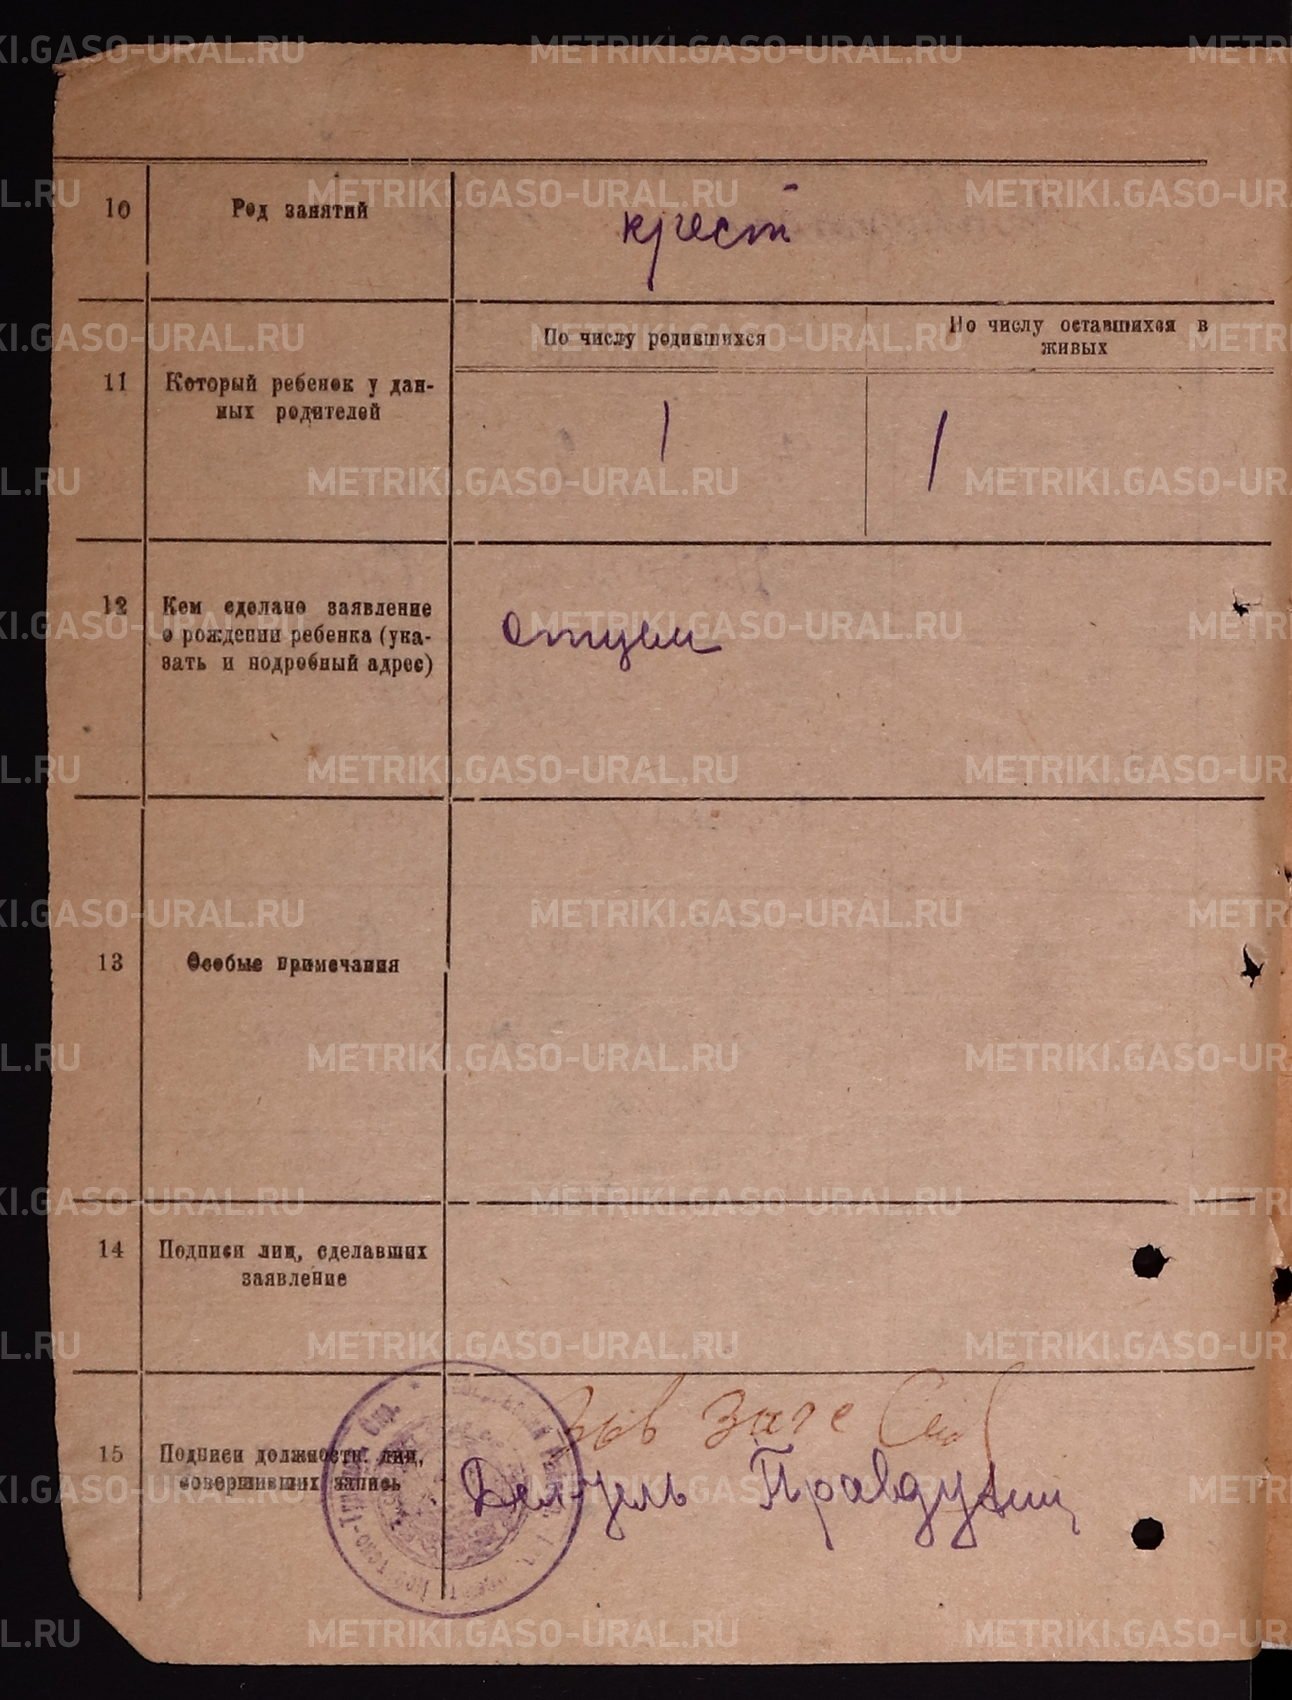 METRIKI.GASO-URAL.RU
10
Род занятий
крест
11
Который ребенок у дан-
ных родителей
По числу родившихся
По числу оставшихся в
живых
1
1
12
Кем сделано заявление
о рождении ребенка (ука-
зать и подробный адрес)
отцем
13
Особые примечания
14
Подписи лиц, сделавших
заявление
15
Подписи должностн. лиц,
совершивших запись
Зав Загс
Дел-цель